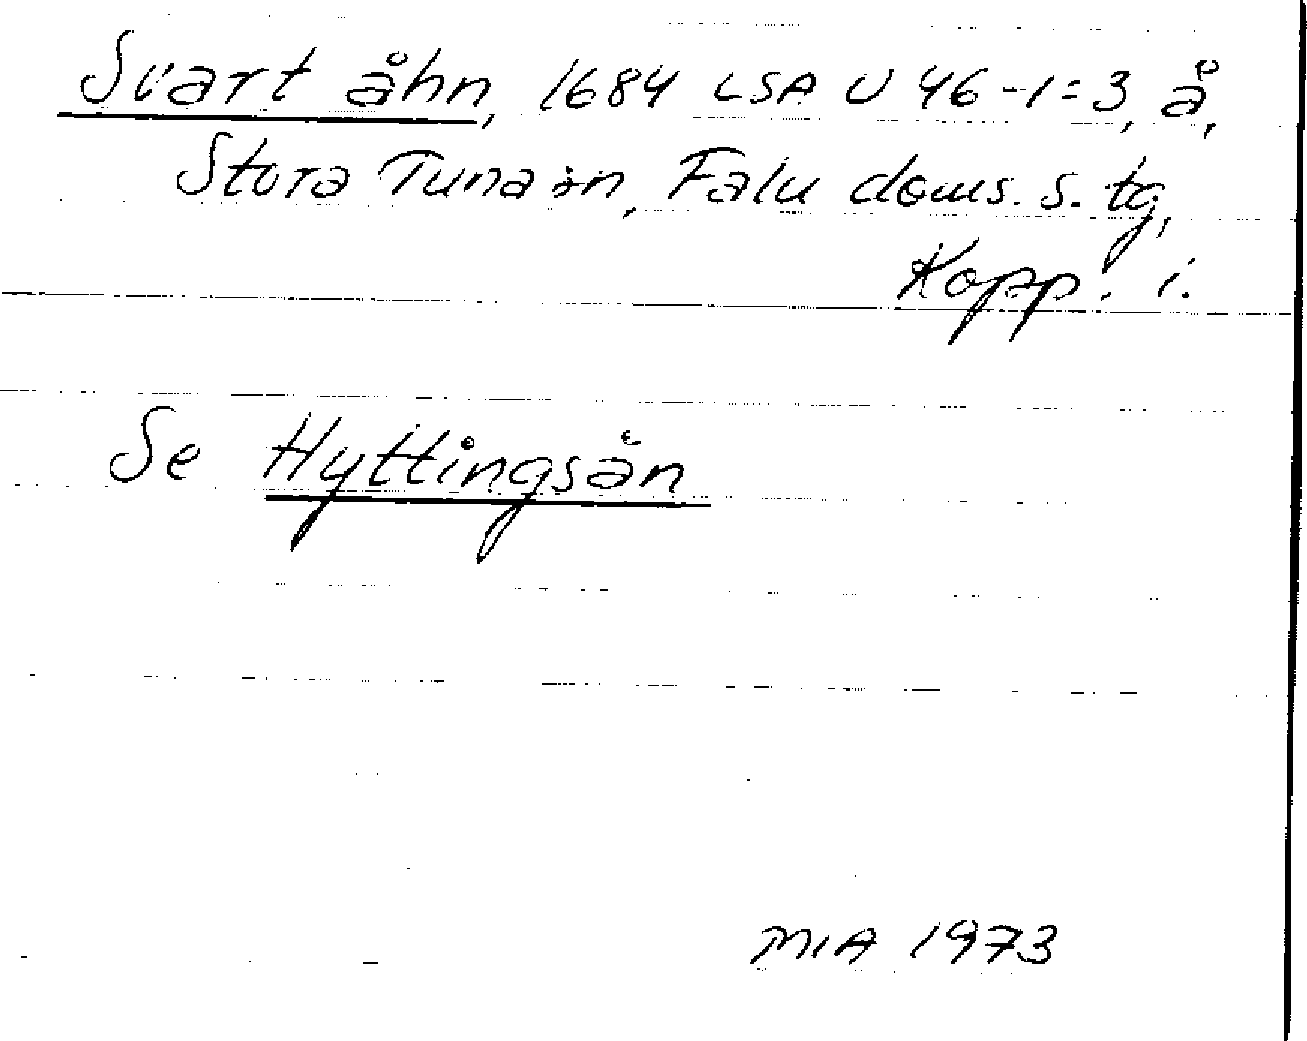 Svart åhn, 1684 LSA U 46-1:3, å,
Stora Tuna sn, Falu doms. s. tg,
Kopp. l.
Se Hyttingsån
MIA 1973